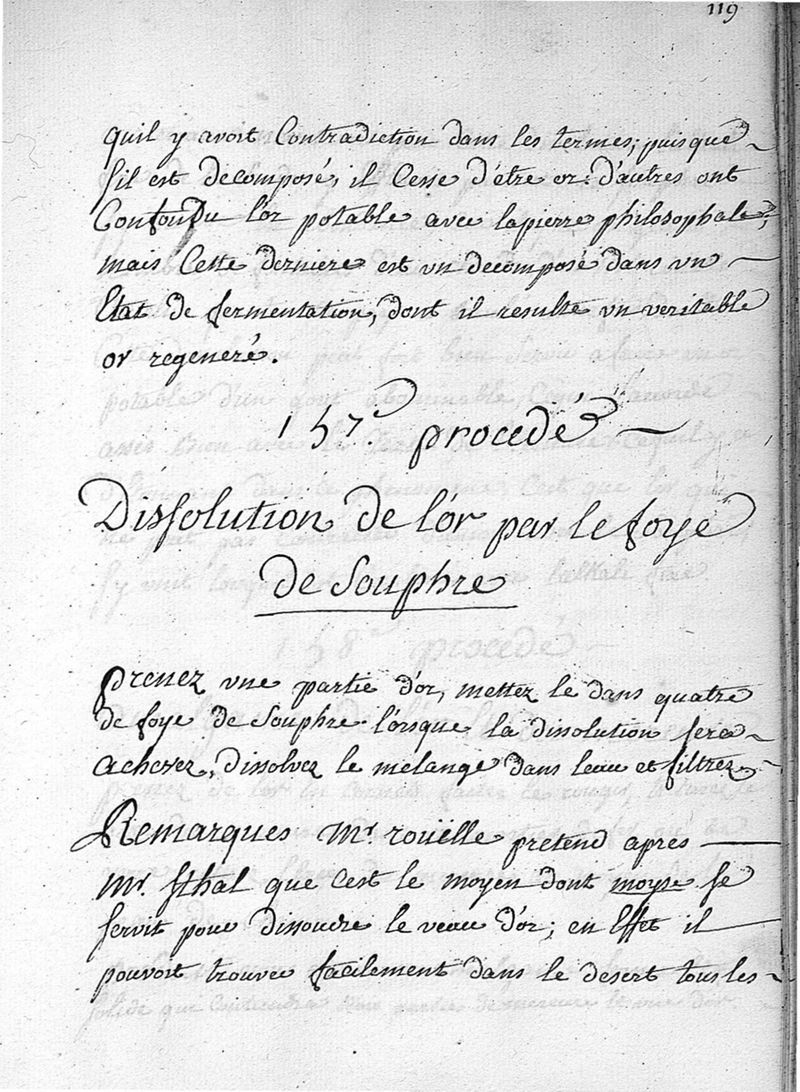 119
quil y avoit Contradiction dans les termes, puisque
s'il est decomposé, il Cesse d'être or: d'autres ont
Confondu l'or potable avec la pierre philosophale,
mais Cette derniere est un decomposé dans un
Etat de fermentation, dont il resulte un veritable
or regeneré.
157e. procedé
Dissolution de l'or par le foye
de Souphre
prenez une partie d'or, mettez le dans quatre
de foye de Souphre. lorsque la dissolution sera
achevez, dissolvez le mélange dans leau et filtrez.
Remarques Mr. rouëlle pretend après
Mr. Sthal que C'est le moyen dont moyse se
servit pour dissoudre le veau d'or; en Effet il
pouvoit trouver facilement dans le desert tous les